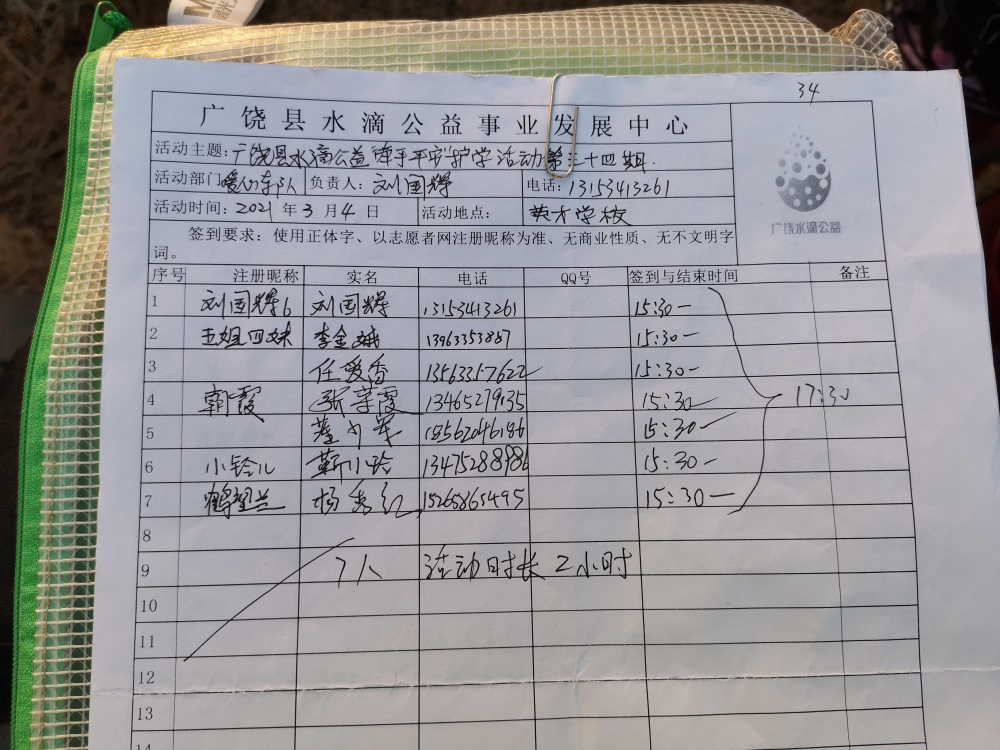 34
广饶县水滴公益事业发展中心
活动主题：广饶县水滴公益"牵手平安"护学活动第三十四期.
活动部门 暖心车队 负责人：刘国辉 电话：13153413261
活动时间：2021 年 3 月 4 日 活动地点： 英才学校
广饶水滴公益
签到要求：使用正体字、以志愿者网注册昵称为准、无商业性质、无不文明字
词。
序号 注册昵称 实名 电话 QQ号 签到与结束时间 备注
1 刘国辉6 刘国辉 13153413261 15:30—
2 五姐四妹 李金娥 13963353887 15:30—
3 任爱香 13563357622 15:30—
4 霸霞 张荣霞 13465279135 15:30— 17:30
5 15562046186 15:30—
6 小铃儿 靳小玲 13475288986 15:30—
7 鹤望兰 杨秀红 15265865495 15:30—
8
9 7人 活动时长 2小时
10
11
12
13
14